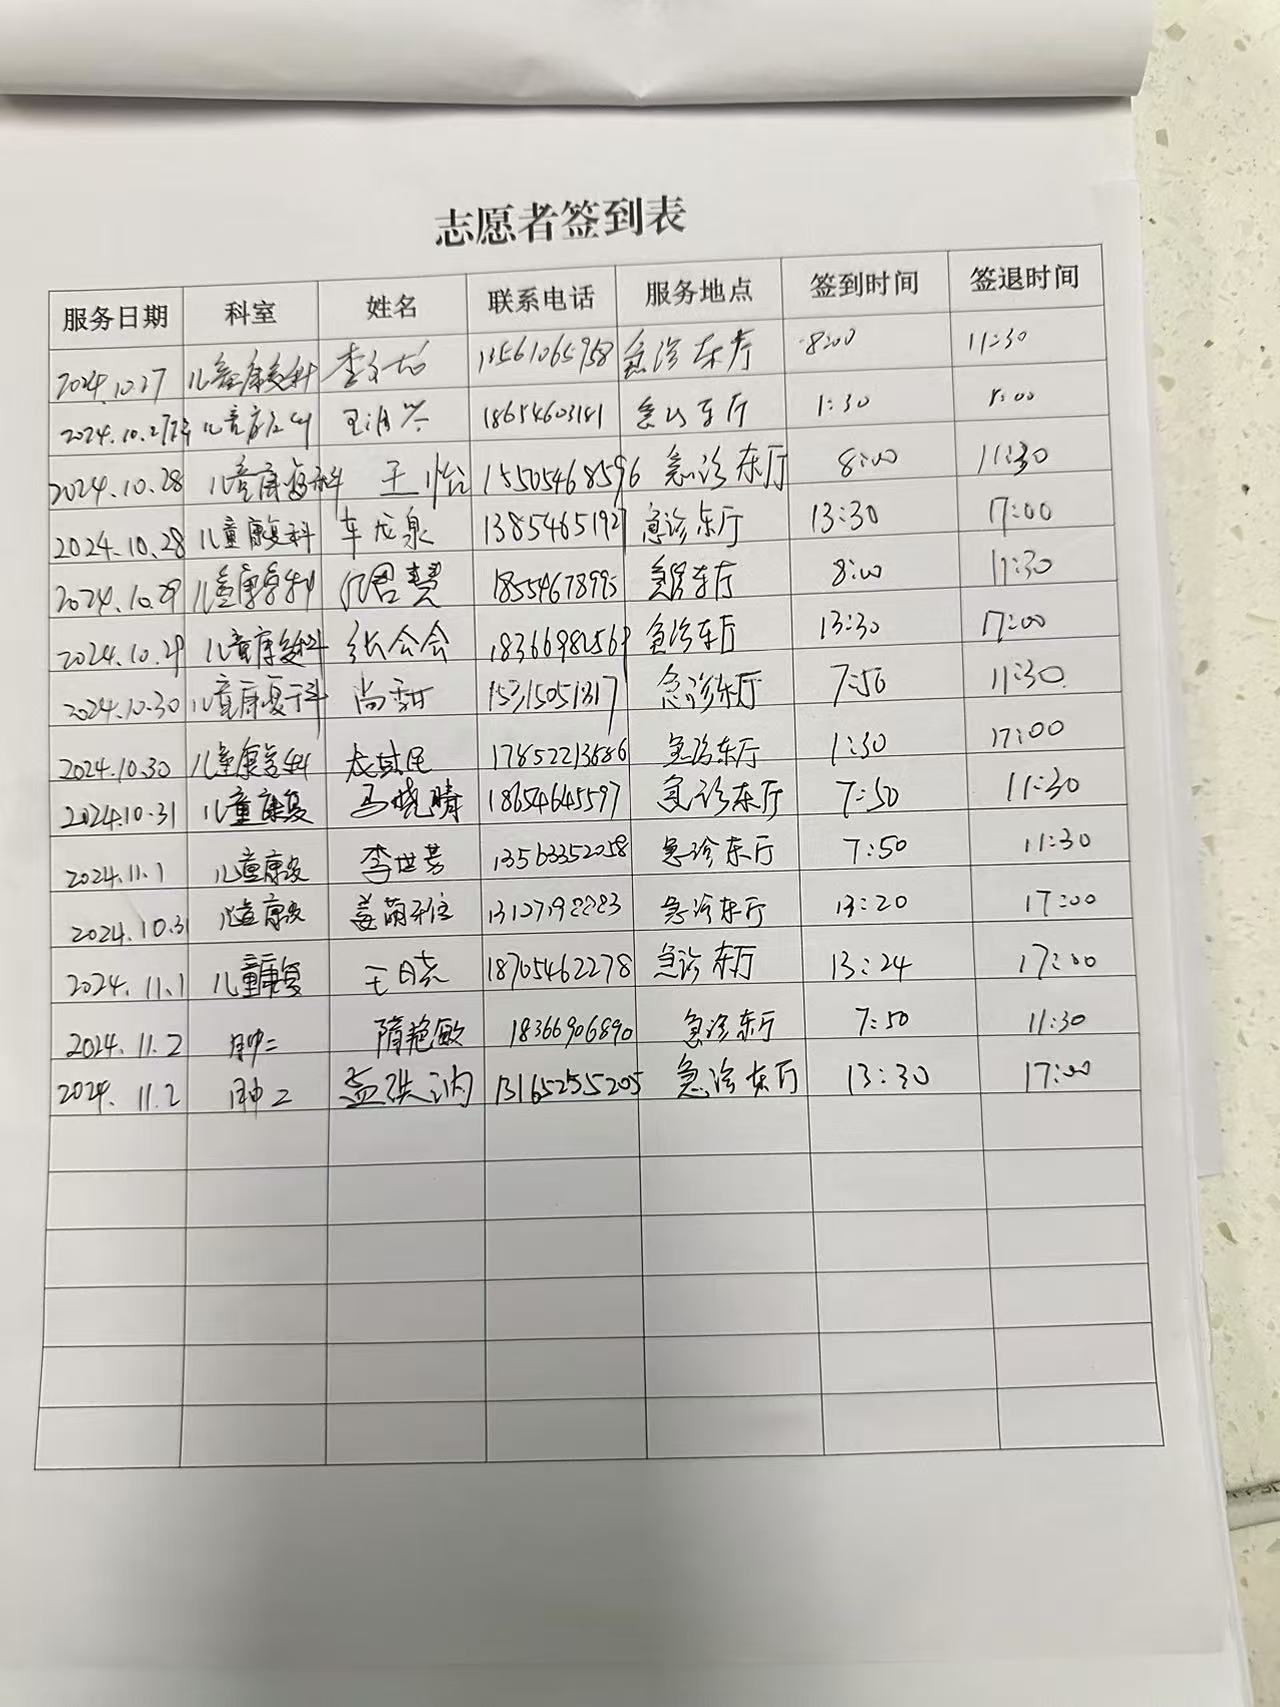 志愿者签到表
服务日期 科室 姓名 联系电话 服务地点 签到时间 签退时间
2024.10.27 儿童康复科 李 13561065958 急诊东厅 8:00 11:30
2024.10.27 儿童康复科 王 18654603181 急诊东厅 1:30 5:00
2024.10.28 儿童康复科 王怡 15505468596 急诊东厅 8:00 11:30
2024.10.28 儿童康复科 车龙泉 13854651927 急诊东厅 13:30 17:00
2024.10.29 儿童康复科 18554678995 急诊东厅 8:00 11:30
2024.10.29 儿童康复科 张会会 18366982569 急诊东厅 13:30 17:00
2024.10.30 儿童康复科 尚甜 15315051317 急诊东厅 7:50 11:30
2024.10.30 儿童康复科 17852213686 急诊东厅 1:30 17:00
2024.10.31 儿童康复 马晓晴 18654645597 急诊东厅 7:50 11:30
2024.11.1 儿童康复 李世芳 13563352058 急诊东厅 7:50 11:30
2024.10.31 儿童康复 姜萌 急诊东厅 13:20 17:00
2024.11.1 儿童康复 王晓 18705462278 急诊东厅 13:24 17:00
2024.11.2 肿二 隋艳敏 18366906890 急诊东厅 7:50 11:30
2024.11.2 肿二 孟洪 13165255205 急诊东厅 13:30 17:00